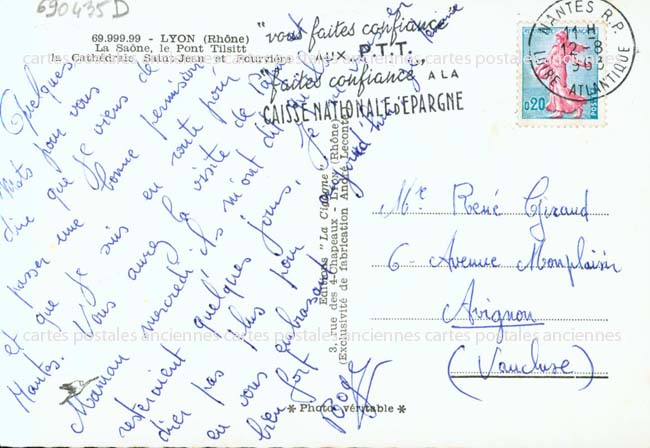 690435D
69.999.99 - LYON (Rhône)
La Saône, le Pont Tilsitt
la Cathédrale Saint-Jean et Fourvière
"vous faites confiance
AUX P.T.T.
faites confiance" À LA
CAISSE NATIONALE D'EPARGNE
NANTES R.P.
11 H
12-8
LOIRE ATLANTIQUE
0,20
POSTES
Quelques
Mots pour vous
dire que je viens de
passer une bonne permission
et que je suis en route pour
Nantes. Vous aurez la visite de Papa
Maman mercredi ils m'ont dit
resteraient quelques jours. Je
dier pas plus pour aujourd'hui
en vous embrassant
bien fort
Editions "La Cigogne"
3, rue des 4-Chapeaux - LYON (Rhône)
(Exclusivité de fabrication André Leconte)
Mr René Giraud
6 - Avenue Monplaisir
Avignon
(Vaucluse)
* Photo véritable *
cartes postales anciennes cartes postales anciennes cartes postales anciennes